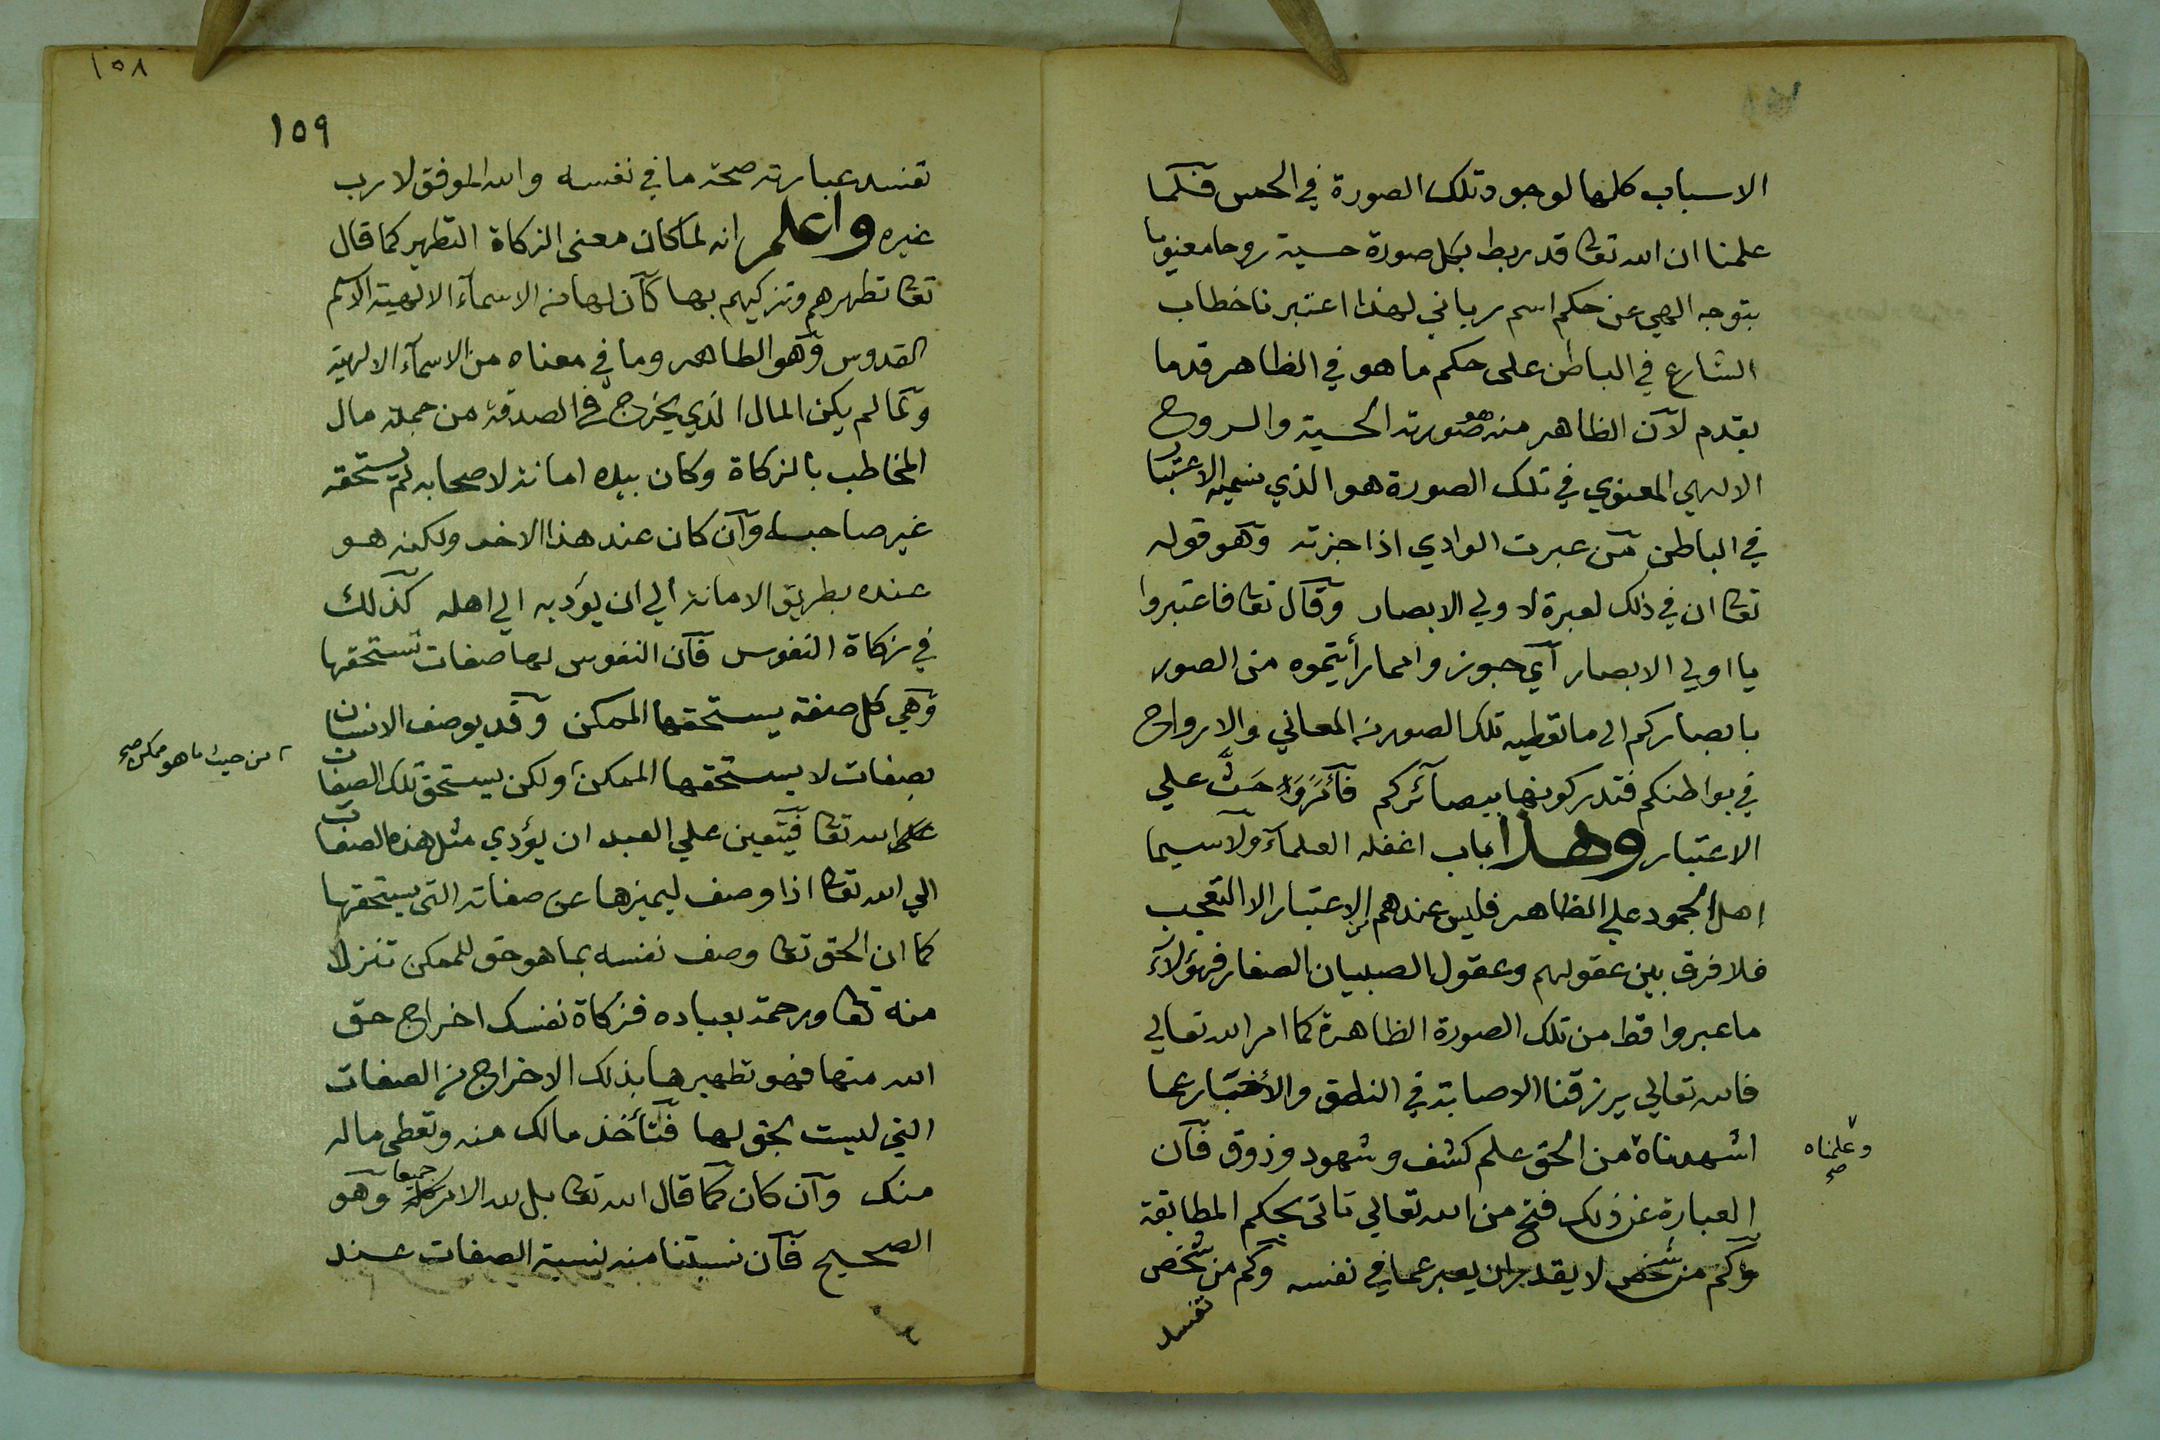 الاسباب كلها لوجود تلك الصورة في الحس فلما
علمنا ان الله تعا قد ربط بكل صورة حسية روحا معنويا
بتوجه الهي عن حكم اسم رباني لهذا اعتبرنا خطاب
الشارع في الباطن على حكم ما هو في الظاهر قدما
بقدم لآن الظاهر منه هو صورته الحسية والروح
الالهي المعنوي في تلك الصورة هو الذي نسميه الاعتبار
في الباطن من عبرت الوادي اذا جزته وهو قوله
تعا ان في ذلك لعبرة لاولي الابصار وقال تعا فاعتبروا
يا اولي الابصار آي جوزوا مما رأيتموه من الصور
بابصاركم الى ما تعطيه تلك الصور من المعاني والارواح
في بواطنكم فتدركونها ببصآئركم حَثَّ علي
الاعتبار وهذا باب اغفله العلمآء ولآسيما
اهل الجمود علي الظاهر فليس عندهم من الاعتبار الا التعجب
فلا فرق بين عقولهم وعقول الصبيان الصغار فهؤلآء
ما عبروا قط من تلك الصورة الظاهرة كما امر الله تعالي
فالله تعالي يرزقنا الاصابة في النطق والأخبار عما
اشهدناه من الحق علم كشف وشهود وذوق فآن
وعلمناه صح
العبارة عن ذلك فتح من الله تعالي تاتي بحكم المطابقة
وكم من شخص لا يقدر ان يعبر عما في نفسه وكم من شخص
تفسد
١٥٨
١٥٩
تفسد عبارته صحة ما في نفسه والله الموفق لا رب
غيره واعلم انه لما كان معنى الزكاة التطهير كما قال
تعا تطهرهم وتزكيهم بها كآن لها من الاسمآء الالهية الاسم
القدوس وهو الطاهر وما في معناه من الاسمآء الالهية
ولما لم يكن المال الذي يخرج في الصدقة من جملة مال
المخاطب بالزكاة وكان بيده امانة لاصحابه لم يستحقه
غير صاحبه وآن كان عند هذا الاخر ولكنه هو
عنده بطريق الامانة الي ان يؤديه الي اهله كذلك
في زكاة النفوس فآن النفوس لها صفات تستحقها
وهي كل صفة يستحقها الممكن وقد يوصف الانسان
بصفات لا يستحقها الممكن ولكن يستحق تلك الصفات
من حيث ما هو ممكن صح
الله تعا فيتعين علي العبد ان يؤدي مثل هذه الصفات
الي الله تعا اذا وصف ليميزها عن صفاته التي يستحقها
كما ان الحق تعا وصف نفسه بما هو حق للممكن تنزلا
منه تعا ورحمة بعباده فزكاة نفسك اخراج حق
الله منها فهو تطهيرها بذلك الاخراج من الصفات
التي ليست بحق لها فتأخذ مالك منه وتعطي ماله
منك وآن كان كما قال الله تعا بل لله الامر جميعا وهو
الصحيح فآن نسبتنا منه نسبة الصفات عند